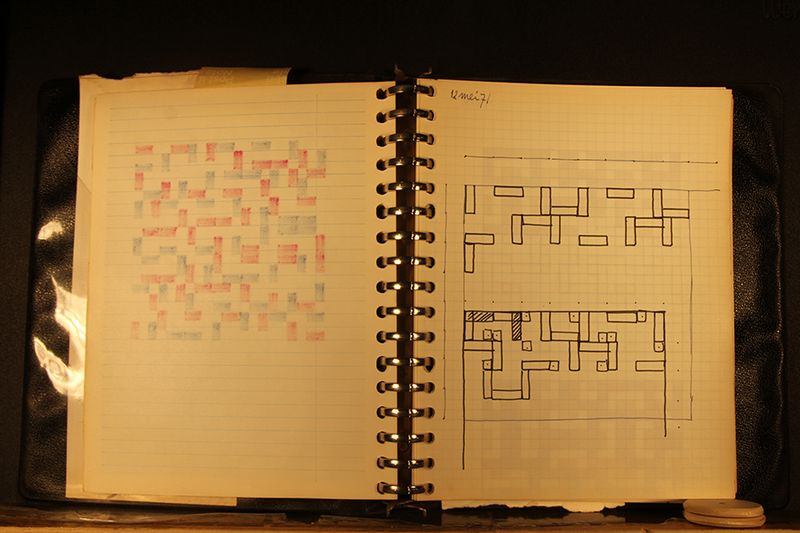 12 mei 71